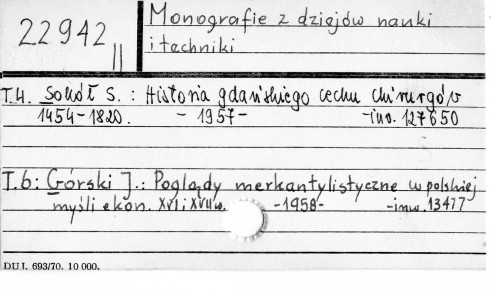 22942 II
Monografie z dziejów nauki
i techniki
T.4. Sokół S.: Historia gdańskiego cechu chirurgów
1454-1820. - 1957- -inw. 127650
T.6: Górski J.: Poglądy merkantylistyczne w polskiej
myśli ekon. XVI i XVII w. -1958- -inw. 13477
DUJ. 693/70. 10 000.